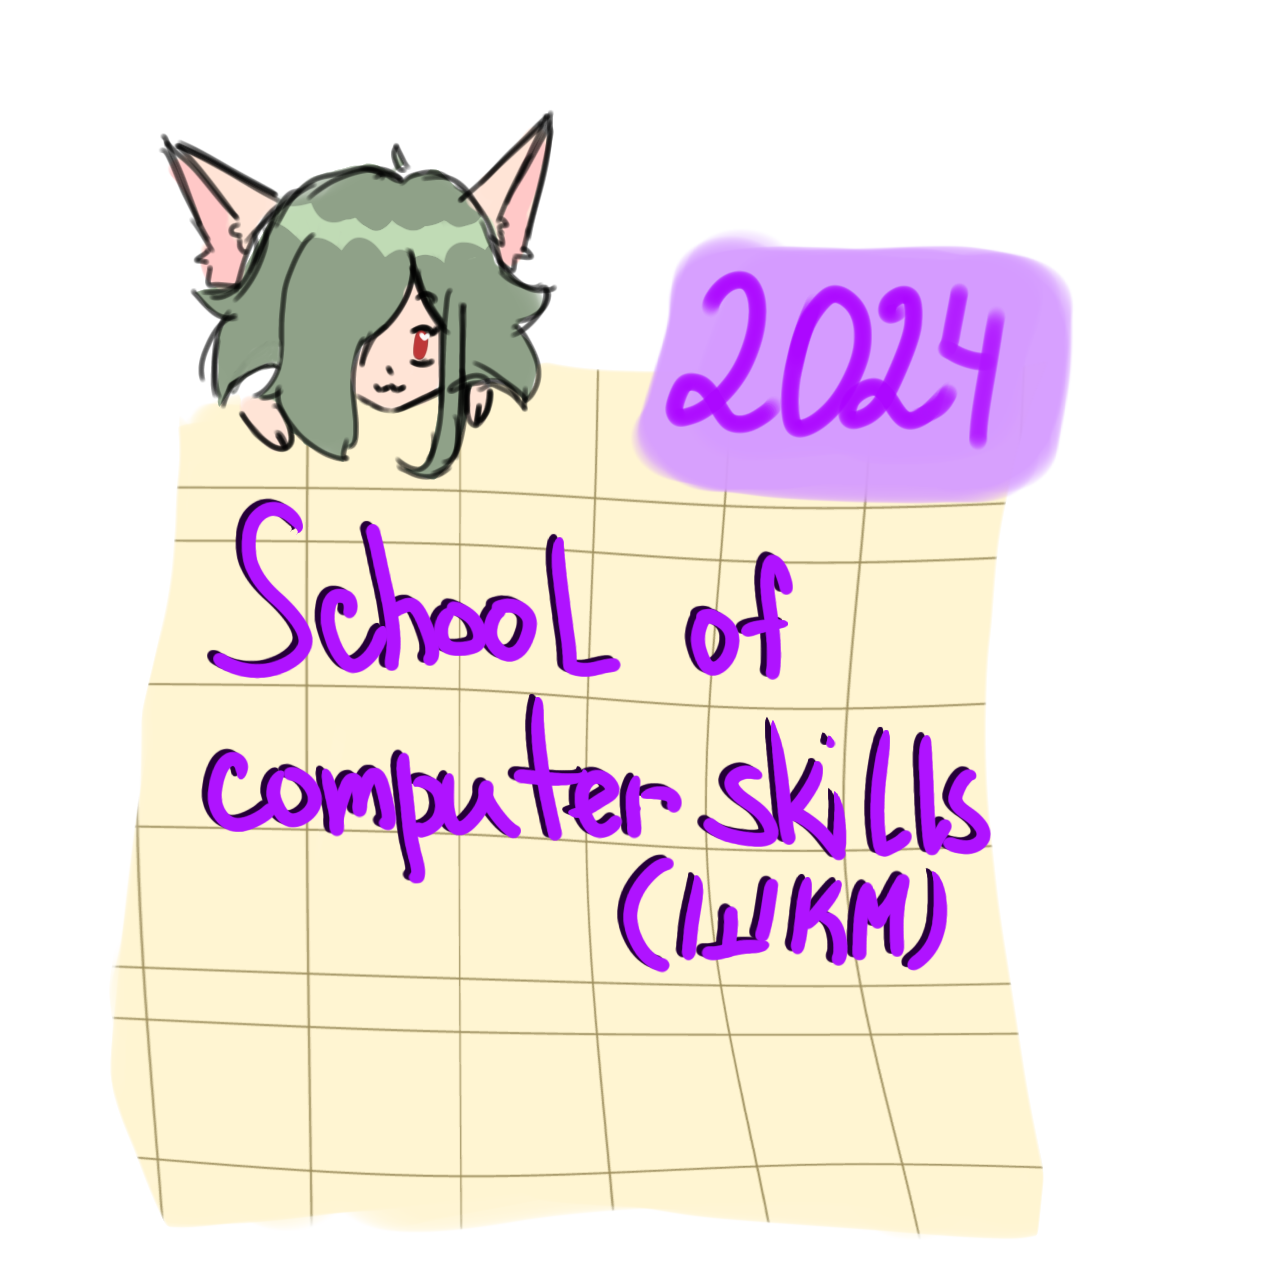 2024
School of
computer skills
(ШКМ)